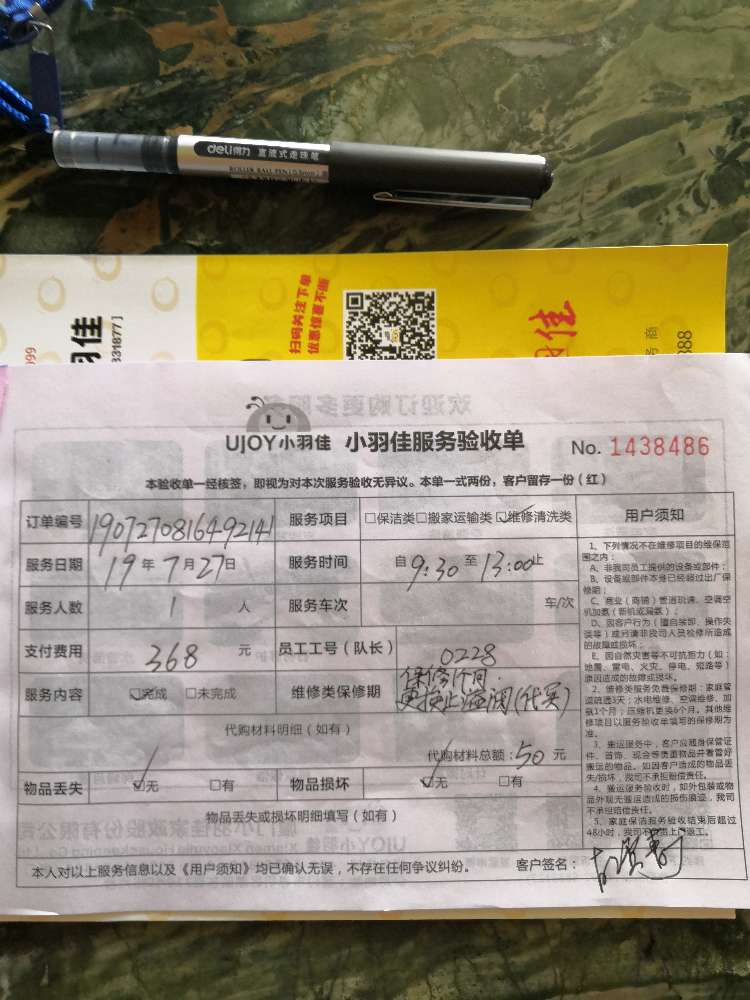 deli得力 直液式走珠笔
ROLLER BALL PEN(0.5mm)
999
羽佳
331877]
扫码关注下单
优惠惊喜不断
羽佳
务商
888
欢迎订购更多服务
UJOY小羽佳 小羽佳服务验收单 No. 1438486
本验收单一经核签,即视为对本次服务验收无异议。本单一式两份,客户留存一份(红)
订单编号 1907270816492141 服务项目 □保洁类□搬家运输类☑维修清洗类 用户须知
服务日期 19年7月27日 服务时间 自9:30至13:00止
服务人数 1 人 服务车次 车/次
支付费用 368 元 员工工号(队长) 0228
服务内容 ☑完成 □未完成 维修类保修期 保修1个月
更换止溢阀(代买)
代购材料明细(如有)
代购材料总额:50元
物品丢失 ☑无 □有 物品损坏 ☑无 □有
物品丢失或损坏明细填写(如有)
本人对以上服务信息以及《用户须知》均已确认无误,不存在任何争议纠纷。 客户签名:
1、下列情况不在维修项目的维保范
围之内:
A、非我司员工提供的设备或部件;
B、设备或部件本身已经超过出厂保
修期;
C、商业(商铺)管道疏通、空调空
机加氨(新机或漏氨);
D、因客户行为(擅自装卸、操作失
误等)或另请非我司人员检修所造成
的故障或损坏;
E、因自然灾害等不可抗拒力(如:
地震、雷电、火灾、停电、短路等)
原因造成的故障或损坏。
2、维修类服务免费保修期:家庭管
道疏通3天;水电维修、空调维修、加
氨1个月;压缩机更换6个月。其他维
修项目以服务验收单填写的保修期为
准。
3、搬运服务中,客户应随身保管证
件、首饰、现金等贵重物品并看管好
搬运的物品。如因客户造成的物品丢
失/损坏,我司不承担赔偿责任。
4、搬运服务验收时,如外包装或物
品外观无搬运造成的损伤痕迹,我司
不承担赔偿责任。
5、家庭保洁服务验收结束后超过
48小时,我司不再上门返工。